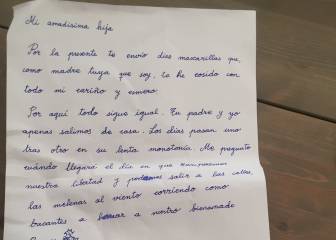 Mi amadísima hija
Por la presente te envío diez mascarillas que,
como madre tuya que soy, te he cosido con
todo mi cariño y esmero.
Por aquí todo sigue igual. Tu padre y yo
apenas salimos de casa. Los días pasan uno
tras otro en su lenta monotonía. Me pregunto
cuándo llegará el día en que
nuestra libertad y podamos salir a las calles,
las melenas al viento corriendo como
bacantes a honrar a nuestro bienamado